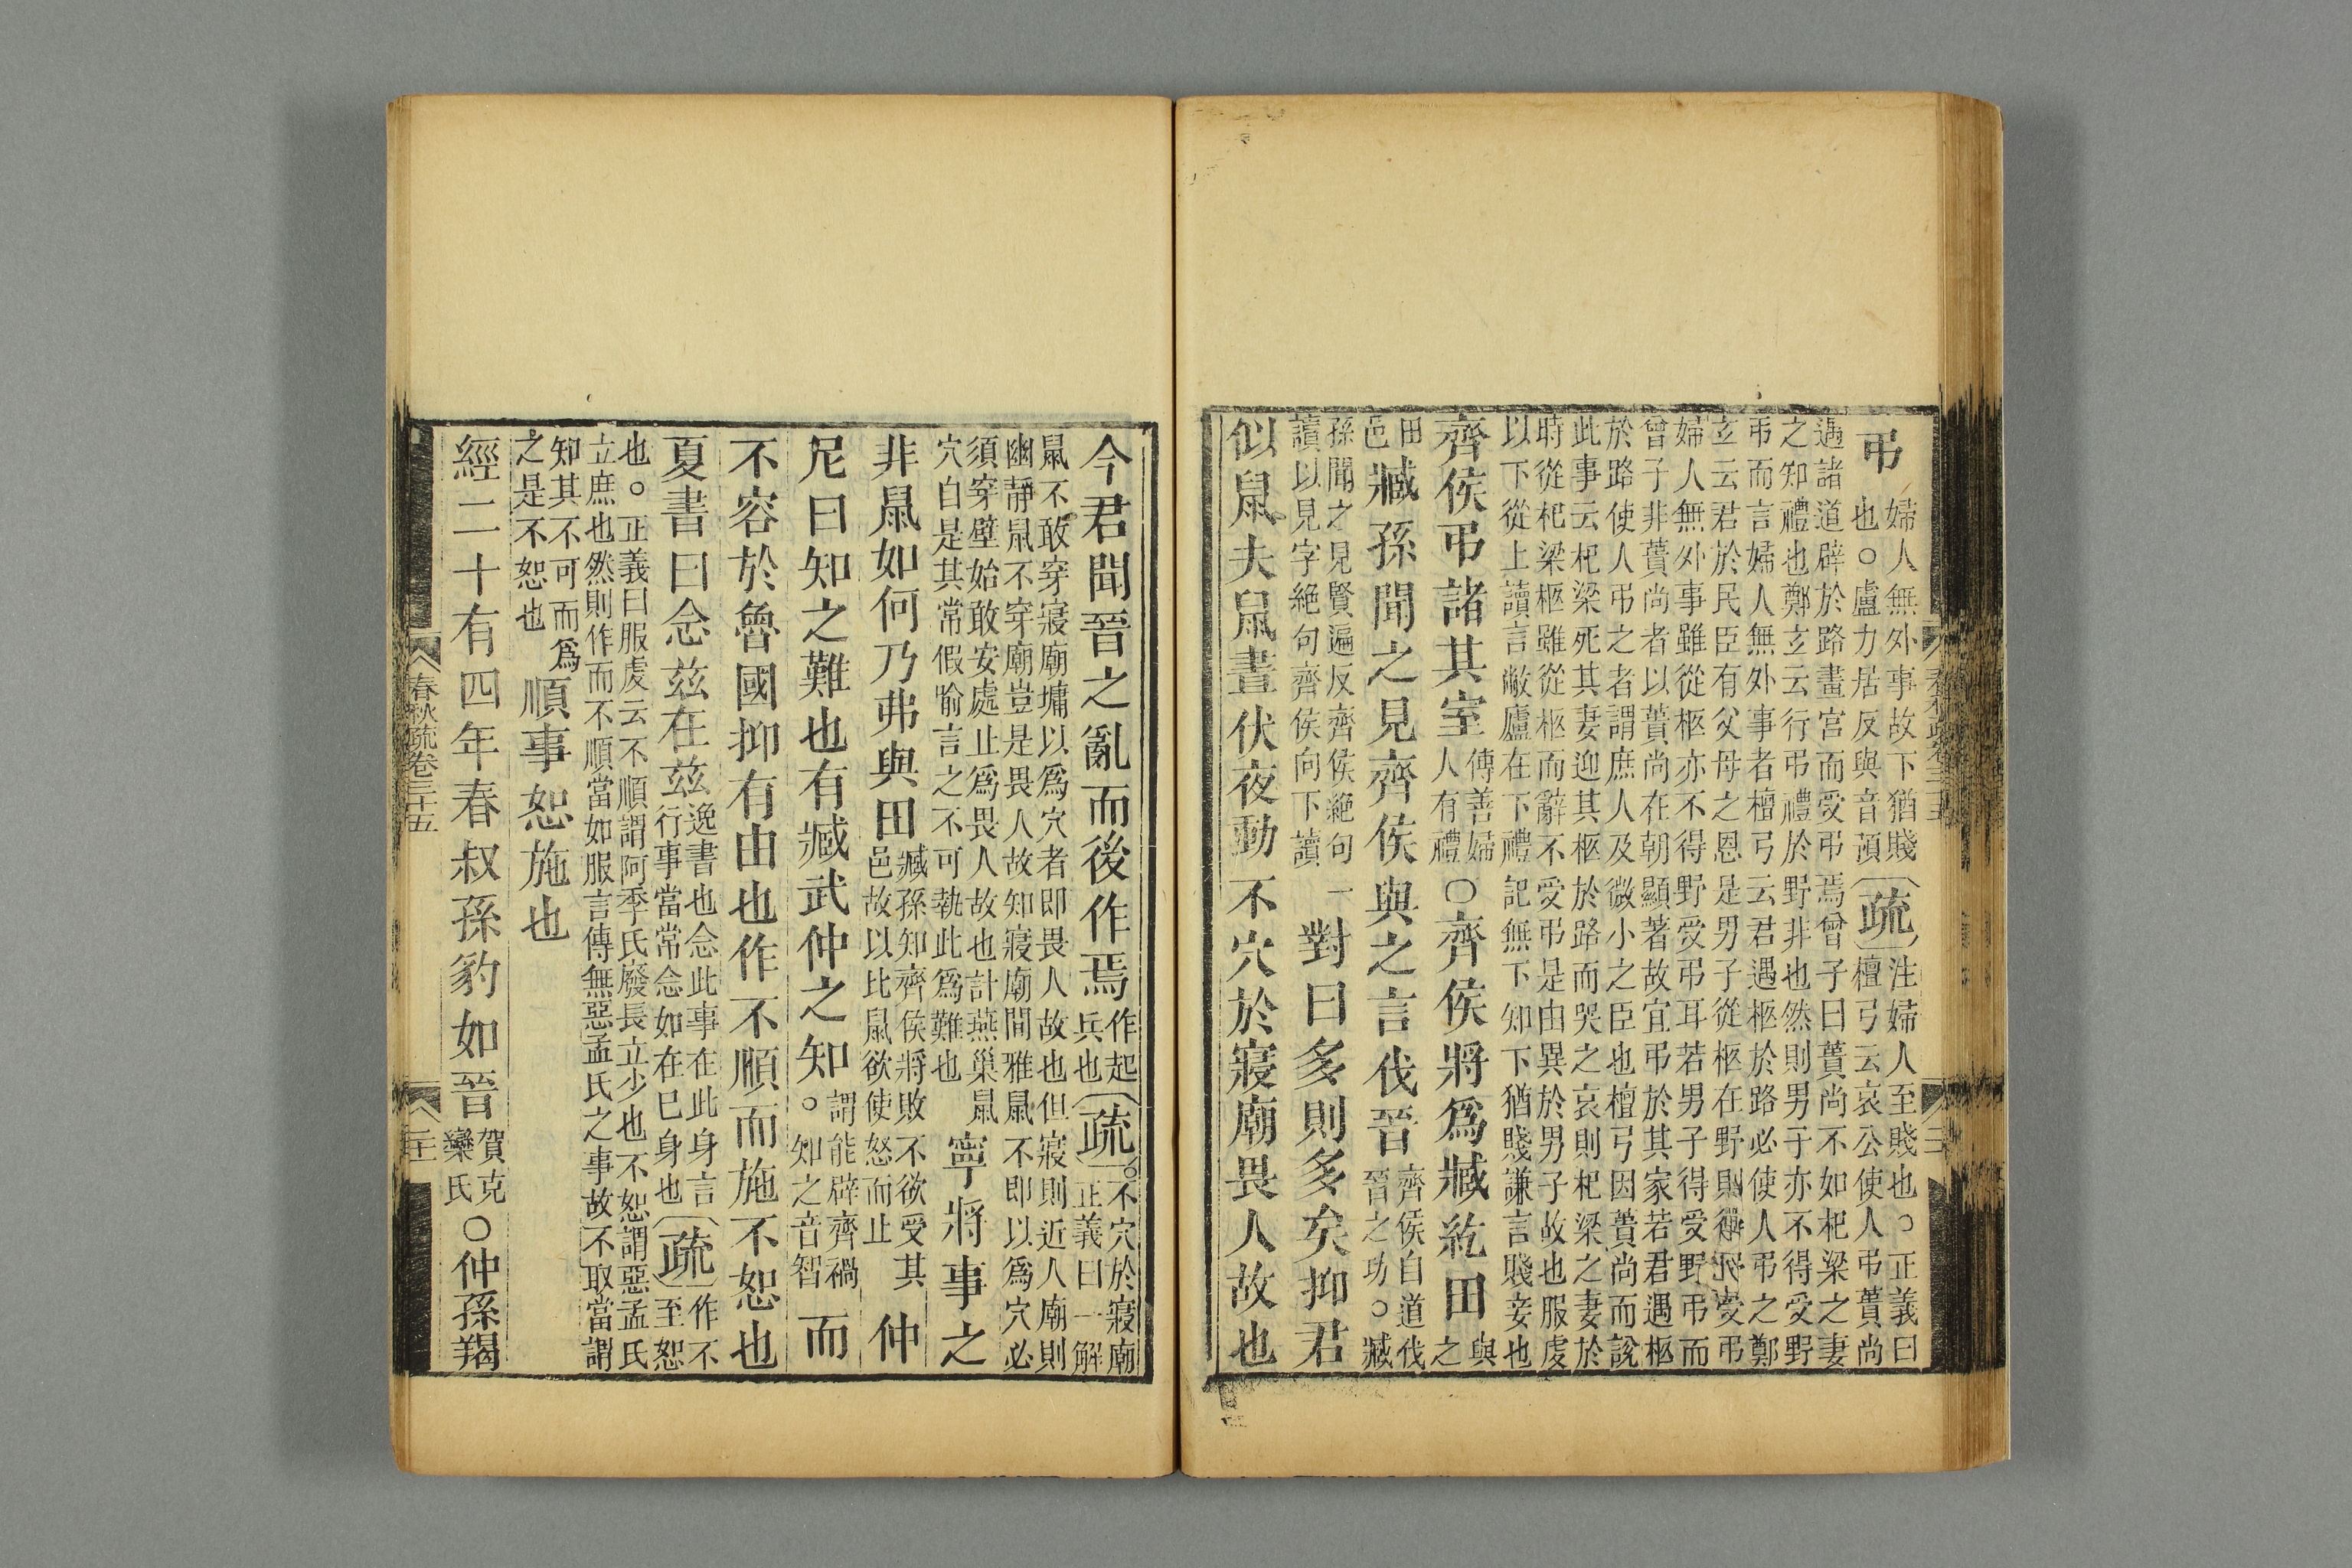 弔
婦人無外事故下猶賤
也○盧力居反與音預
疏
注婦人至賤也○正義曰
檀弓云哀公使人弔蕢尚
遇諸道辟於路畫宮而受弔焉曾子曰蕢尚不如杞梁之妻
之知禮也鄭玄云行弔禮於野非也然則男子亦不得受野
弔而言婦人無外事者檀弓云君遇柩於路必使人弔之鄭
玄云君於民臣有父母之恩是男子從柩在野則得受弔
婦人無外事雖從柩亦不得野受弔耳若男子得受野弔而
曾子非蕢尚者以蕢尚在朝顯著故宜弔於其家若君遇柩
於路使人弔之者謂庶人及微小之臣也檀弓因蕢尚而說
此事云杞梁死其妻迎其柩於路而哭之哀則杞梁之妻於
時從杞梁柩雖從柩而辭不受弔是由異於男子故也服虔
以下從上讀言敝廬在下禮記無下知下猶賤謙言賤妾也
齊侯弔諸其室
傳善婦
人有禮
○齊侯將爲臧紇田
與
之
田
邑
臧孫聞之見齊侯與之言伐晉
齊侯自道伐
晉之功○臧
孫聞之見賢遍反齊侯絶句
讀以見字絶句齊侯向下讀
一
對曰多則多矣抑君
似鼠夫鼠晝伏夜動不穴於寢廟畏人故也
今君聞晉之亂而後作焉
作起
兵也
疏
不穴於寢廟
○正義曰一解
鼠不敢穿寢廟墉以爲穴者即畏人故也但寢則近人廟則
幽靜鼠不穿廟豈是畏人故知寢廟間雅鼠不即以爲穴必
須穿壁始敢安處止爲畏人故也計燕巢鼠
穴自是其常假喻言之不可執此爲難也
寧將事之
非鼠如何乃弗與田
臧孫知齊侯將敗不欲受其
邑故以比鼠欲使怒而止
仲
尼曰知之難也有臧武仲之知
謂能辟齊禍
○知之音智
而
不容於魯國抑有由也作不順而施不恕也
夏書曰念茲在茲
逸書也念此事在此身言
行事當常念如在己身也
疏
作不
至恕
也○正義曰服虔云不順謂阿季氏廢長立少也不恕謂惡孟氏
立庶也然則作而不順當如服言傳無惡孟氏之事故不取當謂
知其不可而爲
之是不恕也
順事恕施也
經二十有四年春叔孫豹如晉
賀克
欒氏
○仲孫羯
春秋疏卷三十五